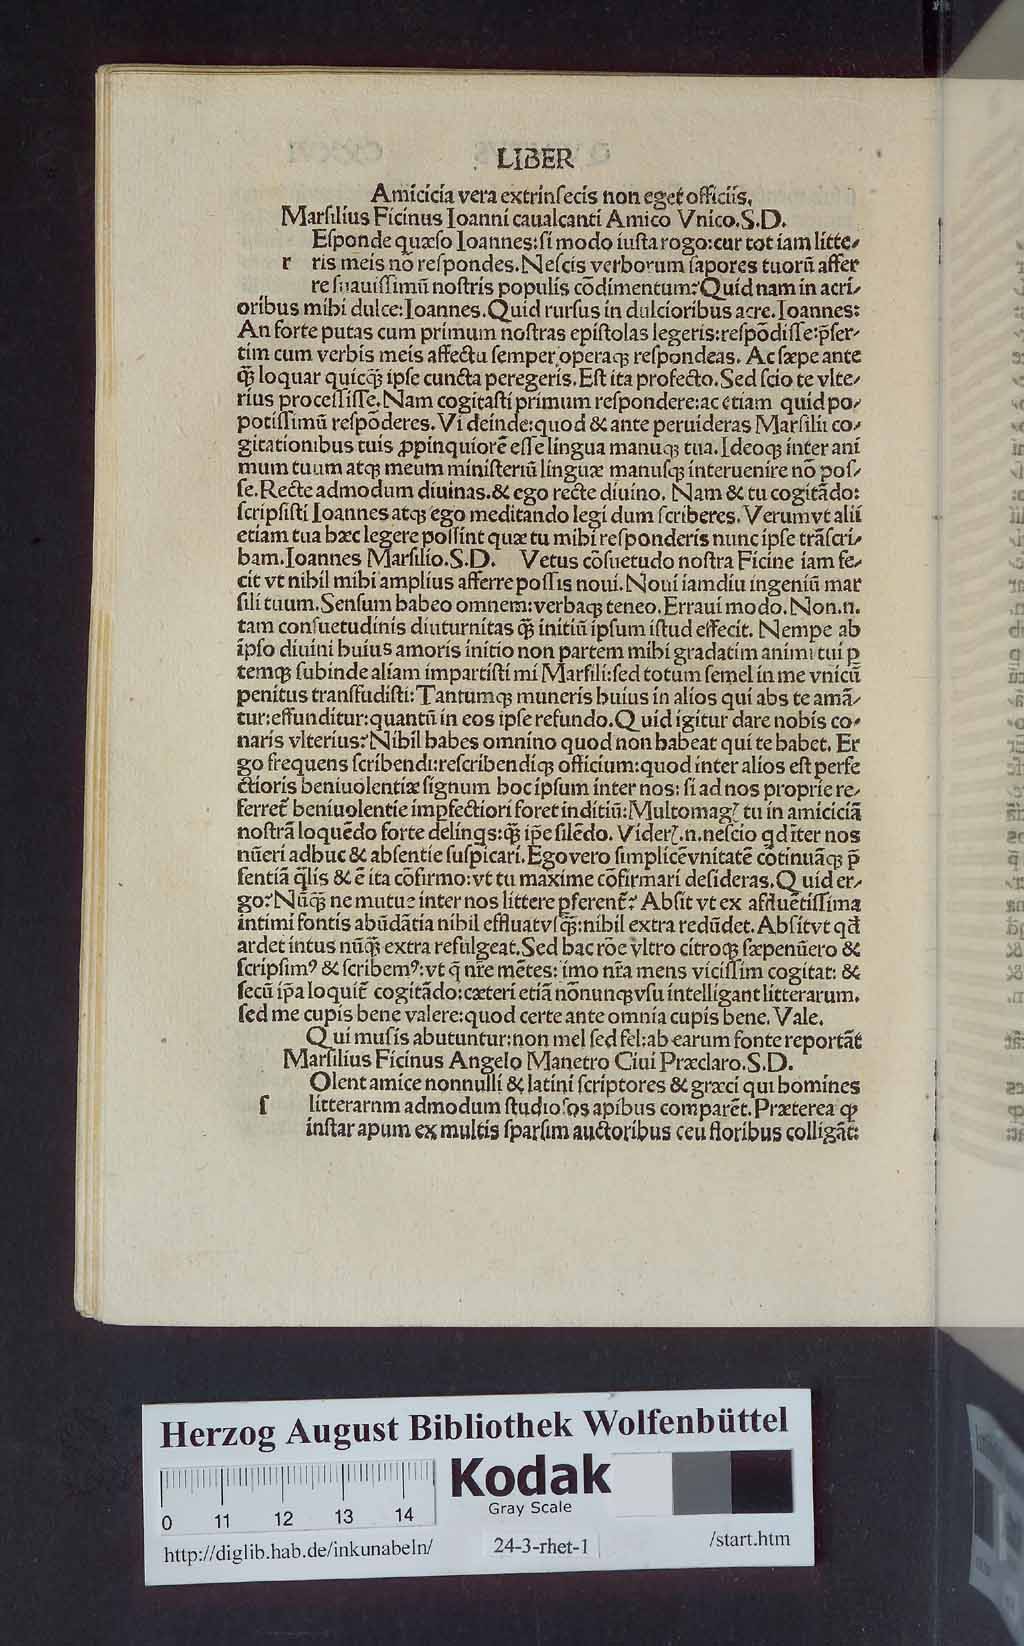 LIBER
Amicicia vera extrinſecis non eget officiis.
Marſilius Ficinus Ioanni caualcanti Amico Vnico.S.D.
Eſponde quæſo Ioannes:ſi modo iuſta rogo:cur tot iam litte⸗
r ris meis nō reſpondes.Neſcis verborum ſapores tuorū affer
re ſuauiſſimū noſtris populis cōdimentum?Quid nam in acri⸗
oribus mihi dulce:Ioannes.Quid rurſus in dulcioribus acre.Ioannes:
An forte putas cum primum noſtras epiſtolas legeris:reſpōdiſſe:p̄ſer⸗
tim cum verbis meis affectu ſemper operaqꝫ reſpondeas. Ac ſæpe ante
q̄ꝫ loquar quicq̄ꝫ ipſe cuncta peregeris.Eſt ita profecto.Sed ſcio te vlte⸗
rius proceſſiſſe.Nam cogitaſti primum reſpondere:ac etiam quid po⸗
potiſſimū reſpōderes.Vi deinde:quod & ante peruideras Marſilii co⸗
gitationibus tuis ꝓpinquiorē eſſe lingua manuqꝫ tua.Ideoqꝫ inter ani
mum tuum atqꝫ meum miniſteriū linguæ manuſqꝫ interuenire nō poſ⸗
ſe.Recte admodum diuinas.& ego recte diuino. Nam & tu cogitādo:
ſcripſiſti Ioannes atqꝫ ego meditando legi dum ſcriberes. Verumvt alii
etiam tua hæc legere poſſint quæ tu mihi reſponderis nunc ipſe trāſcri⸗
bam.Ioannes Marſilio.S.D. Vetus cōſuetudo noſtra Ficine iam fe⸗
cit vt nihil mihi amplius afferre poſſis noui.Noui iamdiu ingeniū mar
ſili tuum.Senſum habeo omnem:verbaqꝫ teneo.Erraui modo.Non.n.
tam conſuetudinis diuturnitas q̄ꝫ initiū ipſum iſtud effecit. Nempe ab
ipſo diuini huius amoris initio non partem mihi gradatim animi tui p
temqꝫ ſubinde aliam impartiſti mi Marſili:ſed totum ſemel in me vnicū
penitus tranſfudiſti:Tantumqꝫ muneris huius in alios qui abs te amā⸗
tur:effunditur:quantū in eos ipſe refundo.Quid igitur dare nobis co⸗
naris vlterius?Nihil habes omnino quod non habeat qui te habet. Er
go frequens ſcribendi:reſcribendiqꝫ officium:quod inter alios eſt perfe
ctioris beniuolentiæ ſignum hoc ipſum inter nos: ſi ad nos proprie re⸗
ferret᷑ beniuolentie imꝑfectiori foret inditiū:Multomagꝭ tu in amiciciā
noſtrā loquēdo forte delinq̄s:q̄ꝫ ip̄e ſilēdo. Viderꝭ.n.neſcio qd īter nos
nūeri adhuc & abſentie ſuſp̄icari.Ego vero ſimplicē vnitatē cōtinuāqꝫ p̄
ſentiā q̄lis & ē ita cōfirmo:vt tu maxime cōfirmari deſideras.Quid er⸗
go?Nūq̄ꝫ ne mutue inter nos littere p̄ferent᷑? Abſit vt ex aflluētiſſima
intimi fontis abūdātia nihil effluat vſq̄ꝫ:nihil extra redūdet.Abſit vt qd̄
ardet intus nūq̄ꝫ extra refulgeat.Sed hac rōe vltro citroqꝫ ſæpenūero &
ſcripſimꝰ & ſcribemꝰ:vt q̄ nr̄e mētes: imo nr̄a mens viciſſim cogitat: &
ſecū ip̄a loquit᷑ cogitādo:cæteri etiā nōnunqꝫ vſu intelligant litterarum.
ſed me cupis bene valere:quod certe ante omnia cupis bene. Vale.
Qui muſis abutuntur:non mel ſed fel:ab earum fonte reportāt
Marſilius Ficinus Angelo Manetro Ciui Præclaro.S.D.
Olent amice nonnulli & latini ſcriptores & græci qui homines
ſ litterarnm admodum ſtudioſos apibus comparēt.Præterea ꝙ
inſtar apum ex multis ſparſim auctoribus ceu floribus colligāt:
Herzog August Bibliothek Wolfenbüttel
Kodak
Gray Scale
0 11 12 13 14
http://diglib.hab.de/inkunabeln/ 24-3-rhet-1 /start.htm